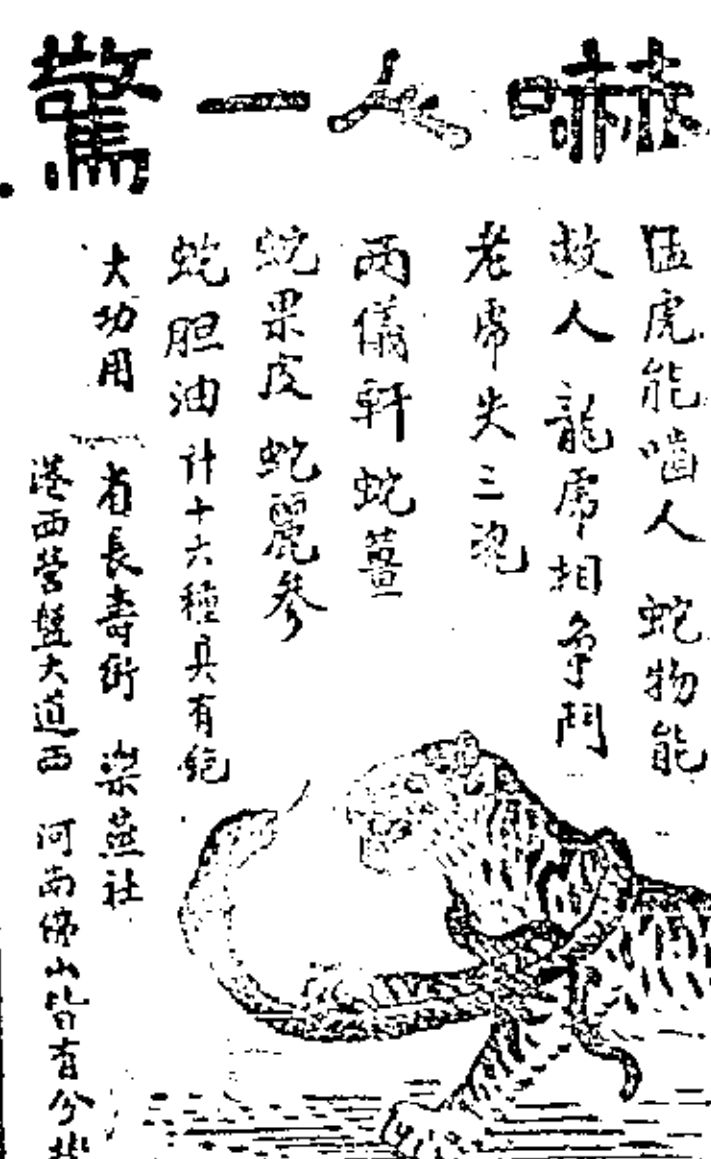 嚇人一驚
猛虎能嚙人 蛇物能
救人 龍虎相爭鬥
老虎失三魂
兩儀軒蛇薑
蛇果皮 蛇麗參
蛇胆油 計十六種具有絕
大功用
省長壽街 梁燕社
港西營盤大道西 河南佛山皆有分